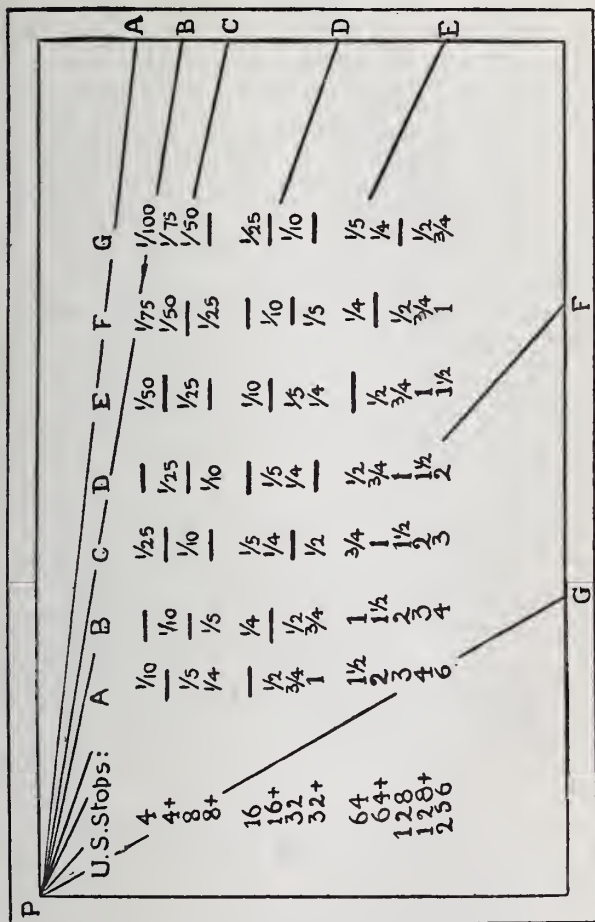 P
U.S.Stops: A B C D E F G
A
4 1/10 — 1/25 — 1/50 1/75 1/100
4+ — 1/10 — 1/25 — 1/50 1/75
B
8 1/5 — 1/10 — 1/25 — 1/50
8+ 1/4 1/5 — 1/10 — 1/25 —
C
16 — 1/4 1/5 — 1/10 — 1/25
16+ 1/2 — 1/4 1/5 — 1/10 —
32 3/4 1/2 — 1/4 1/5 — 1/10
32+ 1 3/4 1/2 — 1/4 1/5 —
D
64 1½ 1 3/4 1/2 — 1/4 1/5
64+ 2 1½ 1 3/4 1/2 — 1/4
128 3 2 1½ 1 3/4 1/2 —
128+ 4 3 2 1½ 1 3/4 1/2
256 6 4 3 2 1½ 1 3/4
E
G F